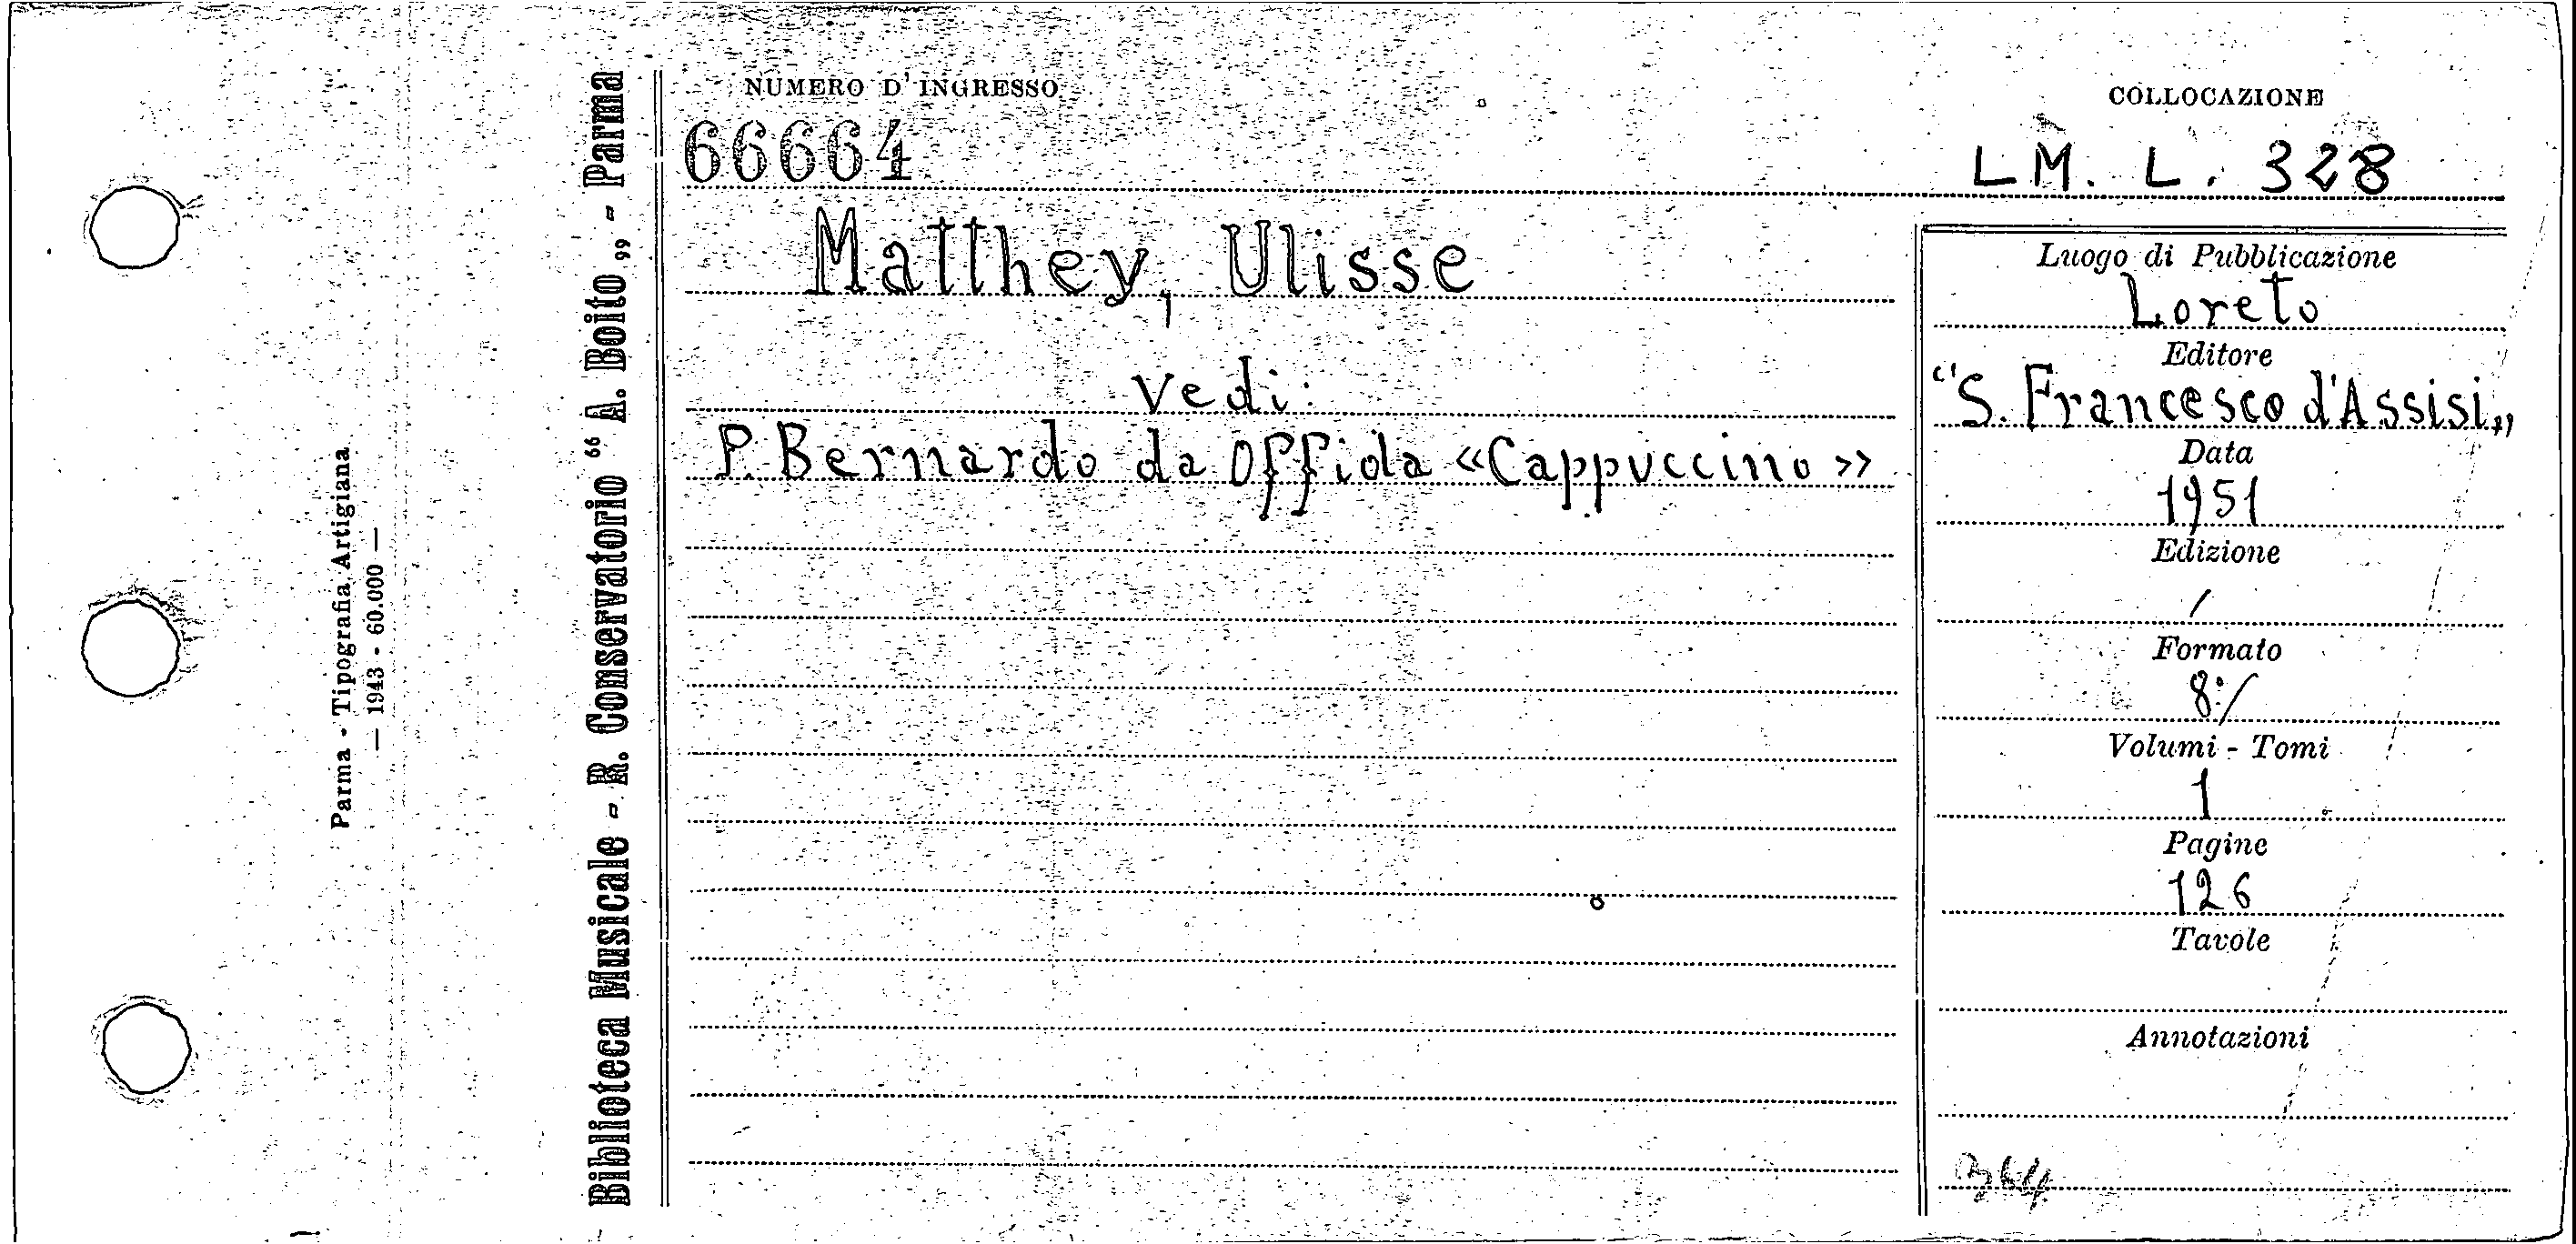 Parma - Tipografia Artigiana
— 1943 - 60.000 —
Biblioteca Musicale - R. Conservatorio “ A. Boito „ - Parma
NUMERO D' INGRESSO
66664
COLLOCAZIONE
LM. L. 328
Matthey, Ulisse
Vedi:
P. Bernardo da Offida «Cappuccino»
Luogo di Pubblicazione
Loreto
Editore
“S. Francesco d'Assisi„
Data
1951
Edizione
/
Formato
8:/
Volumi - Tomi
1
Pagine
126
Tavole
Annotazioni